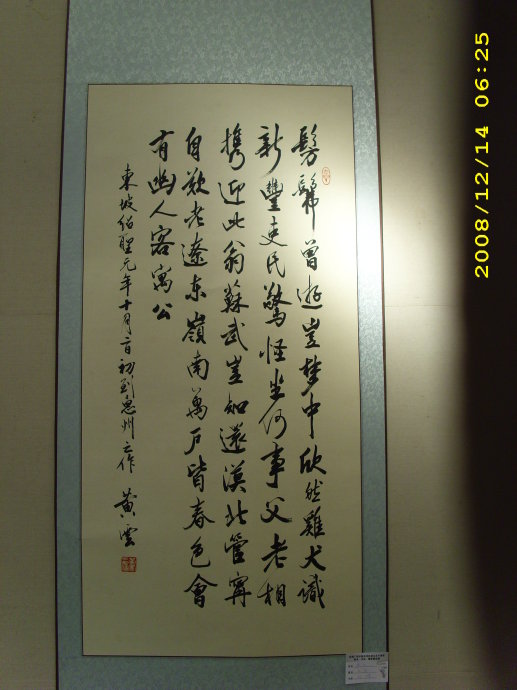 髣髴曾遊豈梦中欣然雞犬識
新豐吏民驚怪坐何事父老相
攜迎此翁蘇武豈知還漠北管甯
自欲老遼東嶺南萬戶皆春色會
有幽人客寓公
東坡紹聖元年十月二日初到惠州之作 黄雲
2008/12/14 06:25